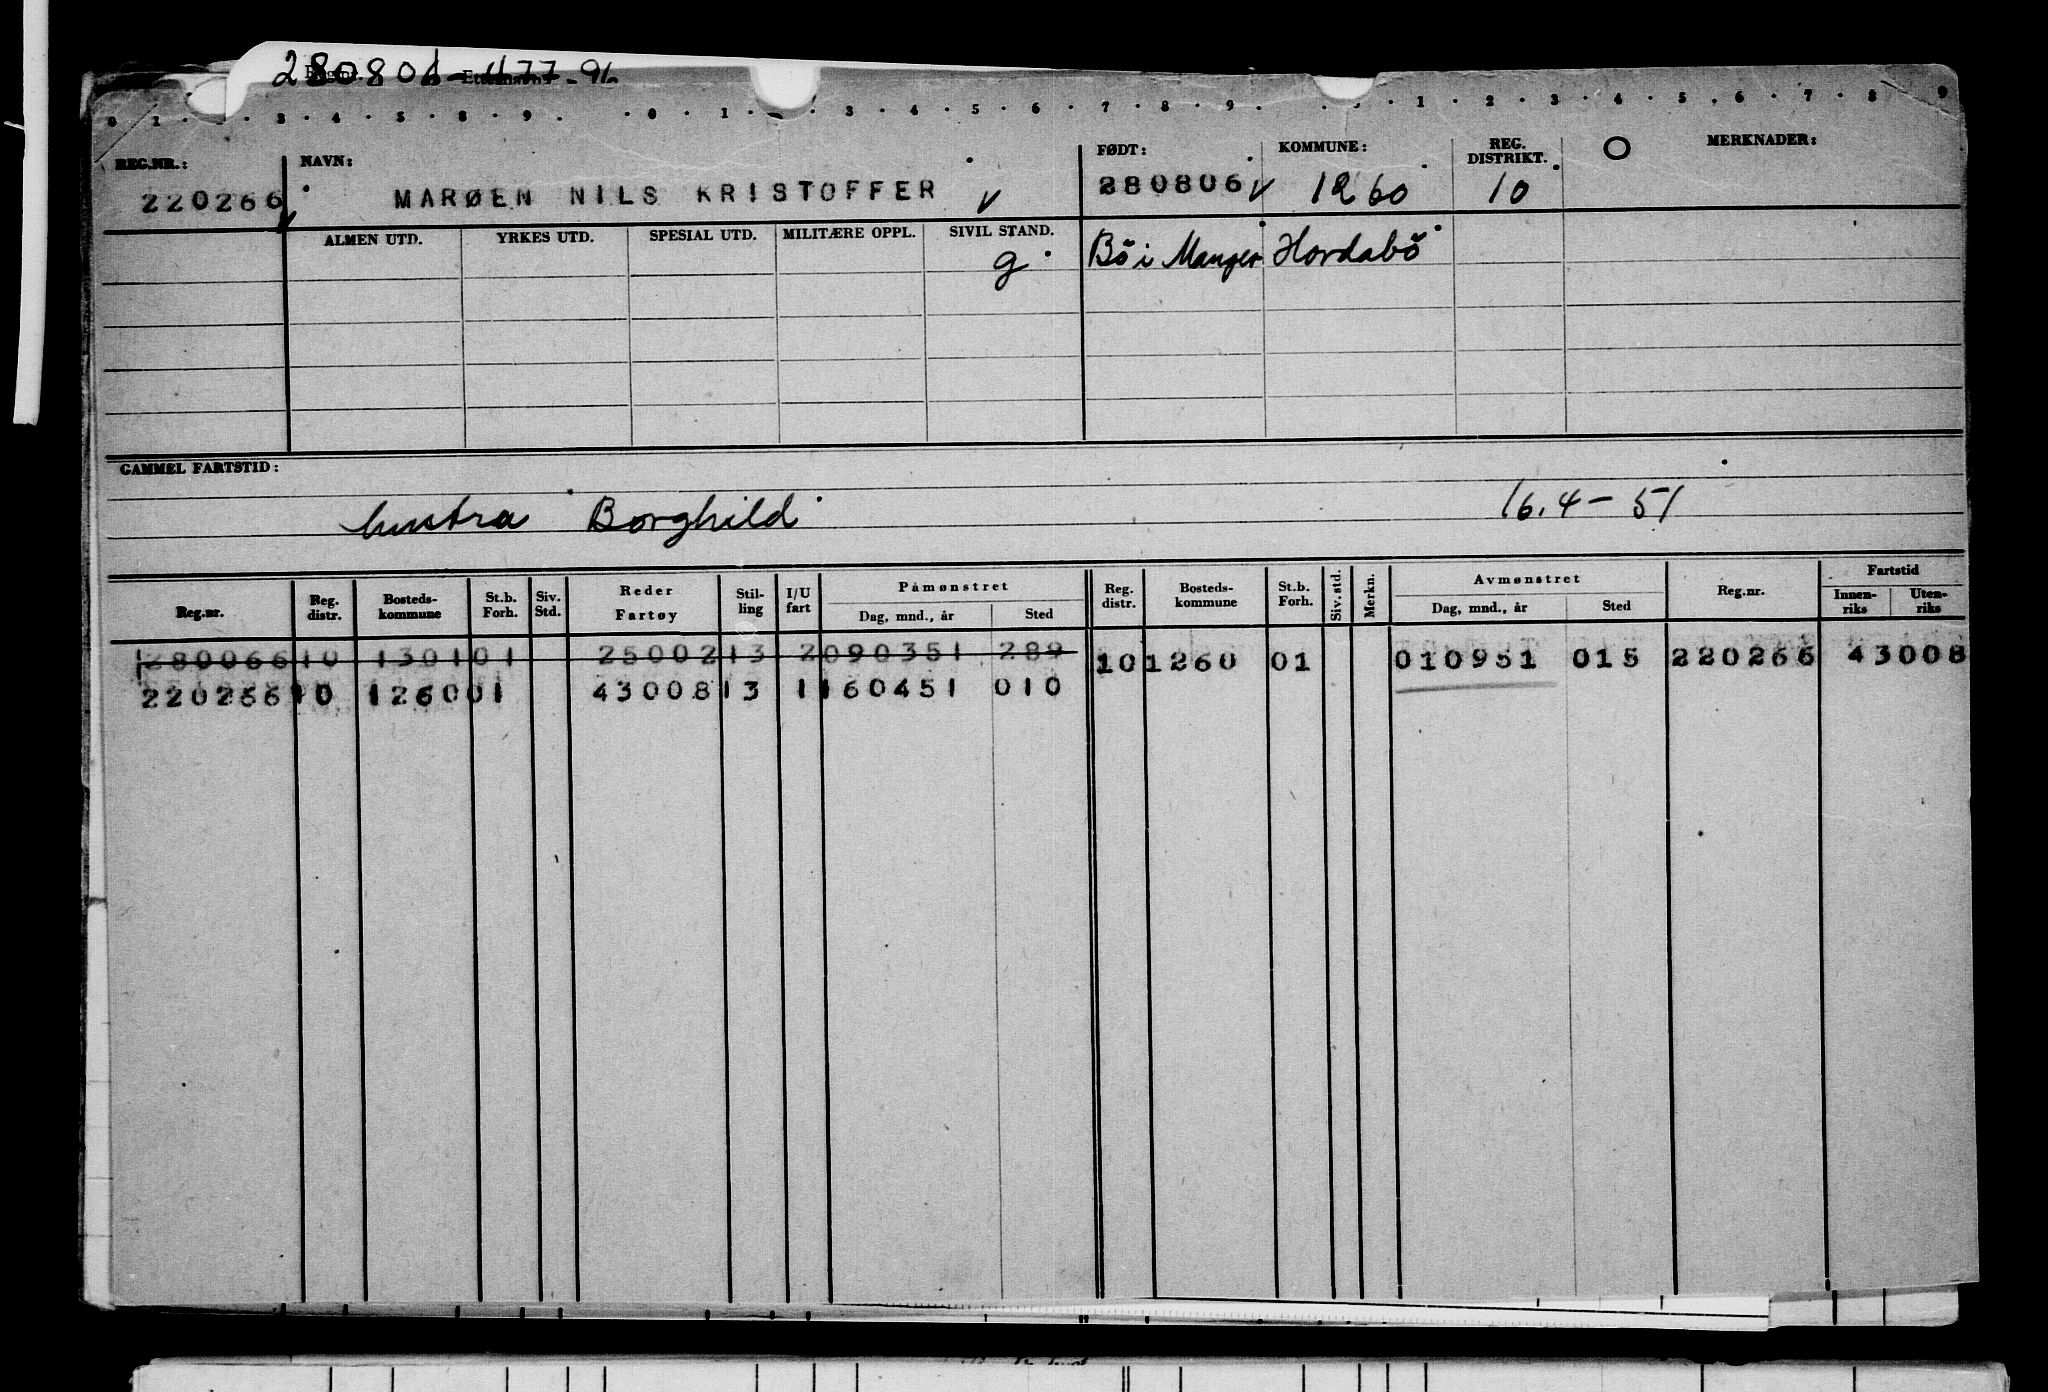 280806-477-91
0 1 . . 3 . 4 . 5 . 8 . 9 . . 0 . 1 . . 3 . 4 . 5 . 6 . 7 . 8 . 9 . . . 1 . 2 . 3 . 4 . 5 . 6 . 7 . 8 . 9
REG.NR.: NAVN: FØDT: KOMMUNE: REG. DISTRIKT. O MERKNADER:
220266 MARØEN NILS KRISTOFFER v 280806 v 1260 10
ALMEN UTD. YRKES UTD. SPESIAL UTD. MILITÆRE OPPL. SIVIL STAND.
g Bö i Manger Hordabö
GAMMEL FARTSTID:
hustru Borghild 16.4-51
Reg.nr. Reg. distr. Bosteds- kommune St.b. Forh. Siv. Std. Reder Fartøy Stil- ling I/U fart Påmønstret Dag, mnd., år Sted Reg. distr. Bosteds- kommune St.b. Forh. Siv. std. Merkn. Avmønstret Dag, mnd., år Sted Reg.nr. Fartstid Innen- riks Uten- riks
280066 10 1301 01 25002 13 2 090351 289 10 1260 01 010951 015 220266 43008
220266 10 1260 01 43008 13 1 160451 010